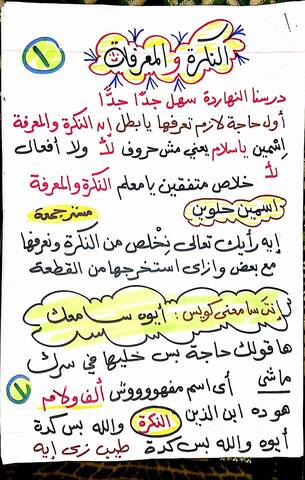 ١
النكرة والمعرفة
درسنا النهاردة سهل جدًا جدًا
أول حاجة لازم تعرفها يا بطل إن النكرة والمعرفة
إسمين ياسلام يعني مش حروف لأ ولا أفعال
لأ خلاص متفقين يا معلم النكرة والمعرفة
اسمين حلوين
إيه رأيك تعالى نخلص من النكرة ونعرفها
مع بعض وازاى استخرجها من القطعة
إنت سامعنى كويس: أيوه سامعك
هاقولك حاجة بس خليها في سرك
ماشى أى اسم مفهووووش ألف ولام
هو ده ابن الذين النكرة والله بس كدة
أيوه والله بس كدة طيب زى إيه